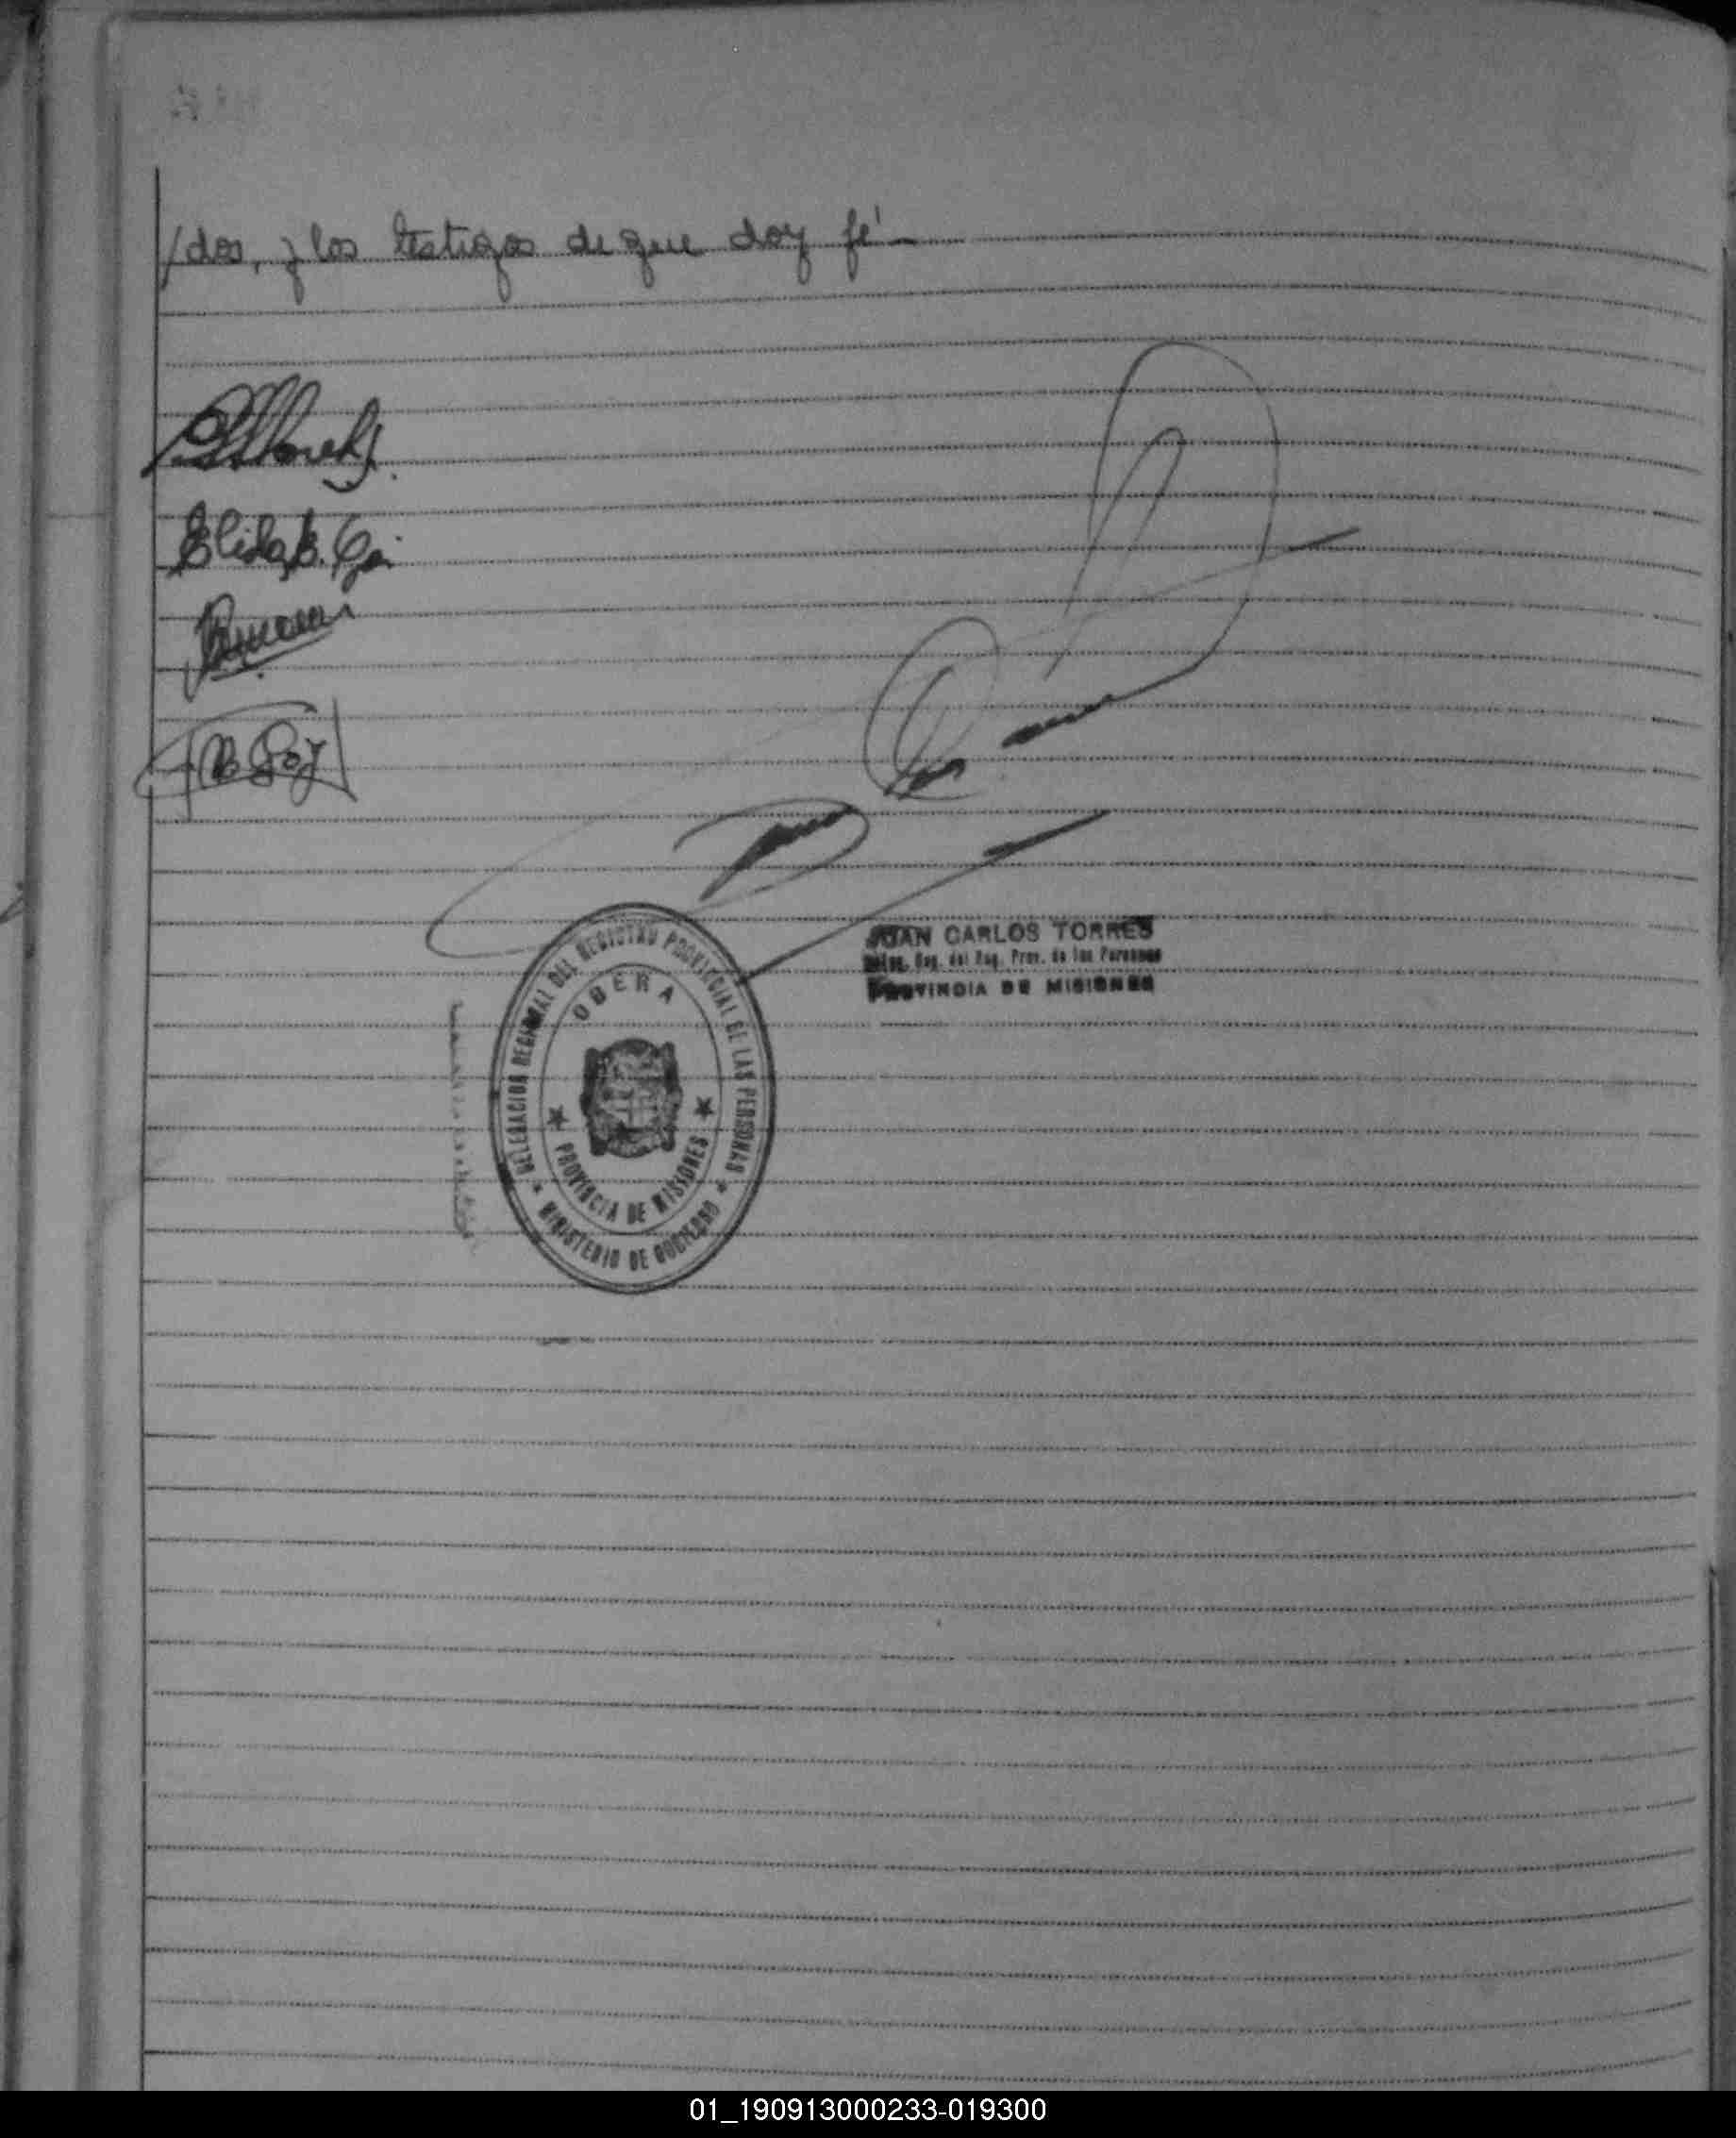 /dos, y los testigos de que doy fé
Elida E.
JUAN CARLOS TORRES
Reg. del Reg. Prov. de las Personas
PROVINCIA DE MISIONES
DELEGACION REGIONAL DEL REGISTRO PROVINCIAL DE LAS PERSONAS
OBERA
PROVINCIA DE MISIONES
MINISTERIO DE GOBIERNO
01_190913000233-019300